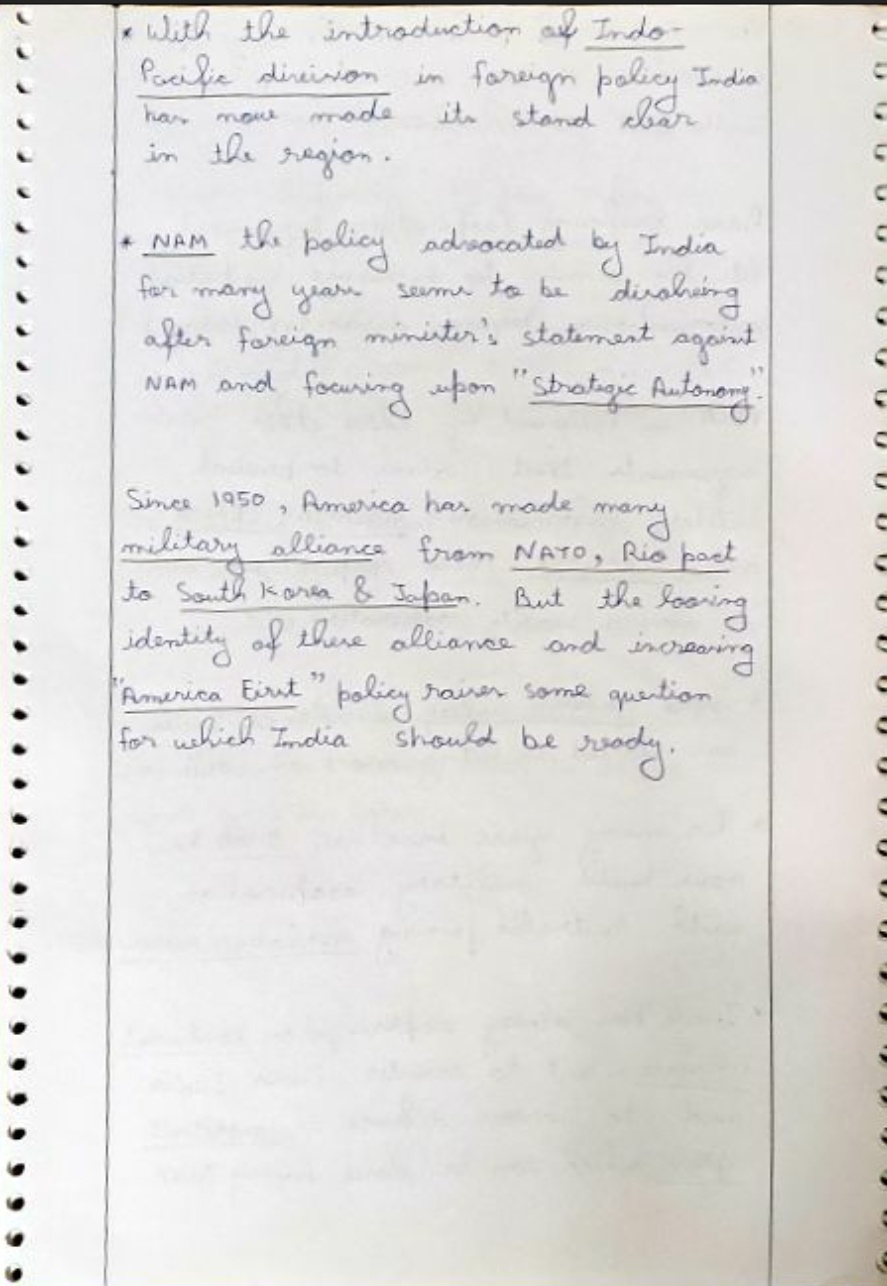 * With the introduction of Indo-
Pacific division in foreign policy India
has now made its stand clear
in the region.
* NAM the policy advocated by India
for many years seems to be disolving
after foreign minister's statement against
NAM and focusing upon "Strategic Autonomy".
Since 1950, America has made many
military alliance from NATO, Rio pact
to South Korea & Japan. But the loosing
identity of these alliance and increasing
"America First" policy raises some question
for which India should be ready.